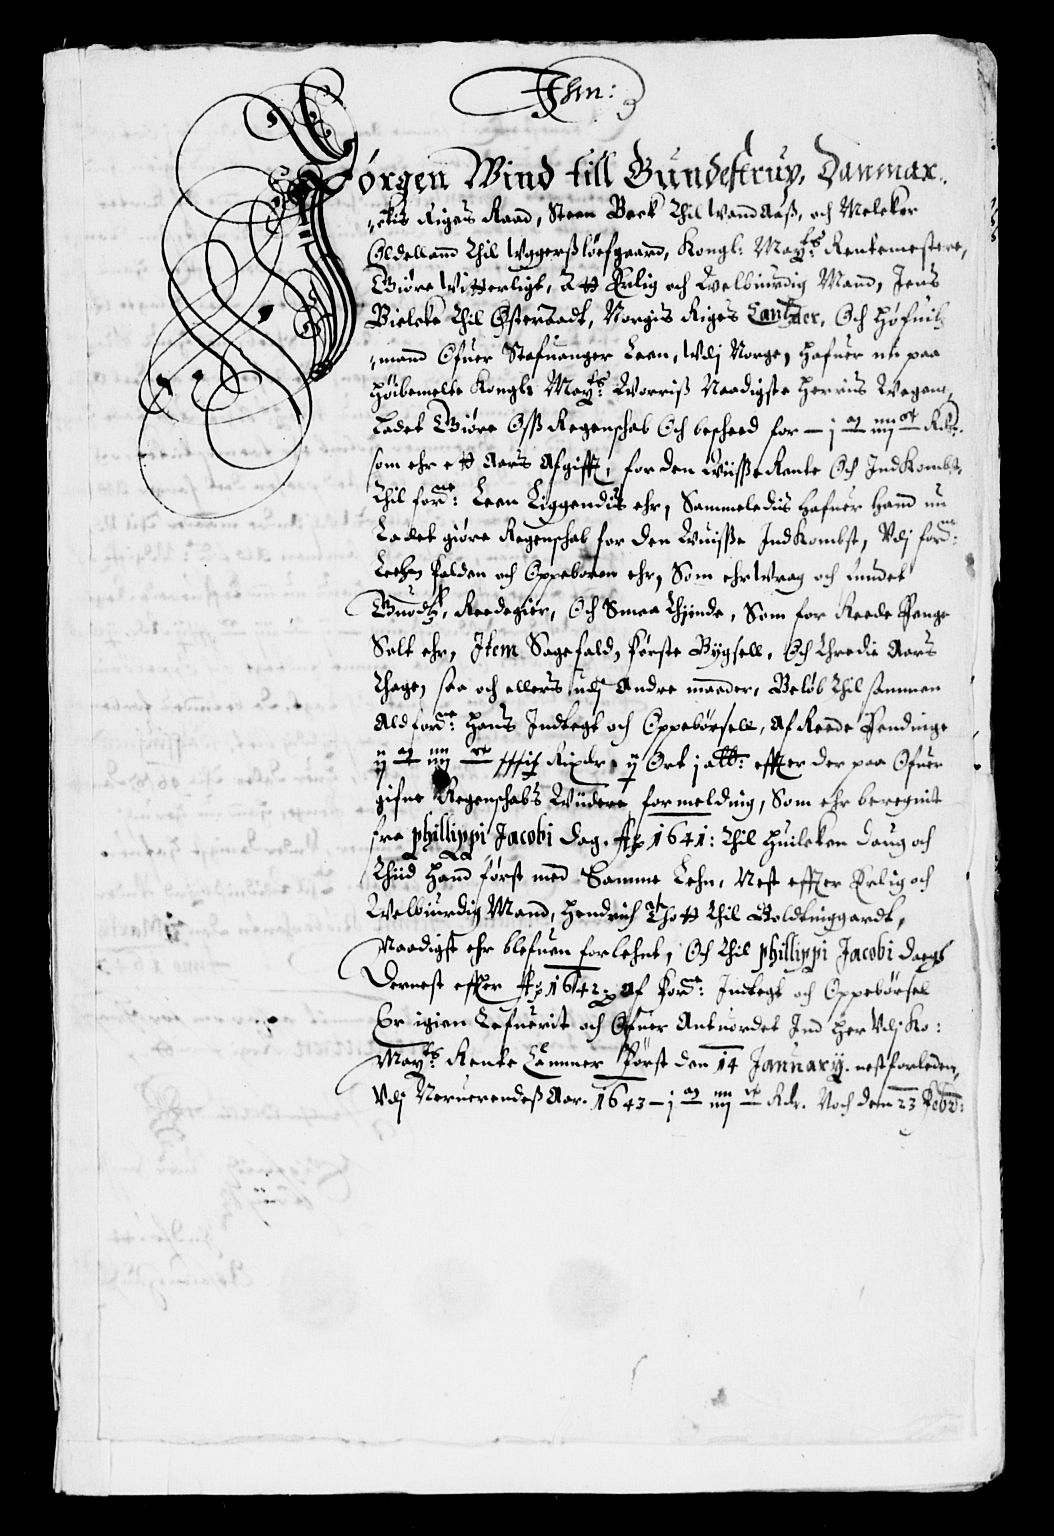 Jhm:
Jörgen Wind till Gundestrup, Danmar-
ckis Rigis Raad, Steen Beck Thil Wandaas, och Melcker
Oldelannd Thil Uggerssløefgaard, Kongl: Maytz Rentemestere,
Giøre Witterligt, att Erlig och Velbiurdig Mannd, Jens
Bielcke Thil Østeraadt, Norgis Rigis Cantzler, Och Høfuitz-
mannd Ofuer Stafuanger Leen, Udj Norge, hafuer nu paa
høibemelte Kongl: Maytz: Worriss Naadigste Herris Wegne,
Ladet Giøre Oss Regenschab Och bescheed for - j M iiij C Rdr.
som ehr ett Aars Afgifft, for den Wisse Rente Och Indkombst,
Thil forne: Leen Liggendis ehr, Sammeledis hafuer hand nu
Ladet giøre Regenschab for den Wuisse Indkombst, Udj forne:
Leehn falden och Oppeboren ehr, Som ehr Wrag och fundet
Guodtz, Reedegier, Och Smaa Thiende, Som for Reede Penge
Solt ehr, Item Sagefald, første Bygsell, Och Thredie Aars
Thage, saa och ellers udj Andre maader, Beløb Thil sammen
Ald forne: hans Indtegt och Oppebørsell, Af Reede Pendinge
ij M iiij C Rixdr ij Ort j alb: effter der paa Ofuer
gifne Regenschabs Widere formelding, Som ehr beregnit
fra Phillippi Jacobi dag. Ao 1641: Thil huilcken daug och
Thiid hannd først med Samme Lehn, Nest effter Erlig och
Welbiurdig Mand, Hendrich Thott Thil Boldtinggardt,
Naadigst ehr blefuen forlehnt, Och Thil Phillippi Jacobi dags
Dernest effter Ao 1642. Af forne: Indtegt och Oppebørsel
Er igien Lefuerit och Ofuer Antuordet Ind her Udj Ko:
Maytz Rente Cammer Først den 14 January. nestforleden,
Udj Neruerendess Aar. 1643 - j M iiij C Rdr. Noch dem 23 Febr: